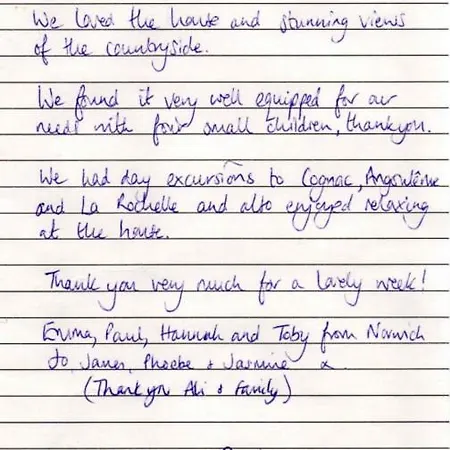 We loved the house and stunning views
of the countryside.
We found it very well equipped for our
needs with four small children, thankyou.
We had day excursions to Cognac, Angoulême
and La Rochelle and also enjoyed relaxing
at the house.
Thank you very much for a lovely week!
Emma, Paul, Hannah and Toby from Norwich
Jo, James, Phoebe & Jasmine x
(Thank you Ali & Family)